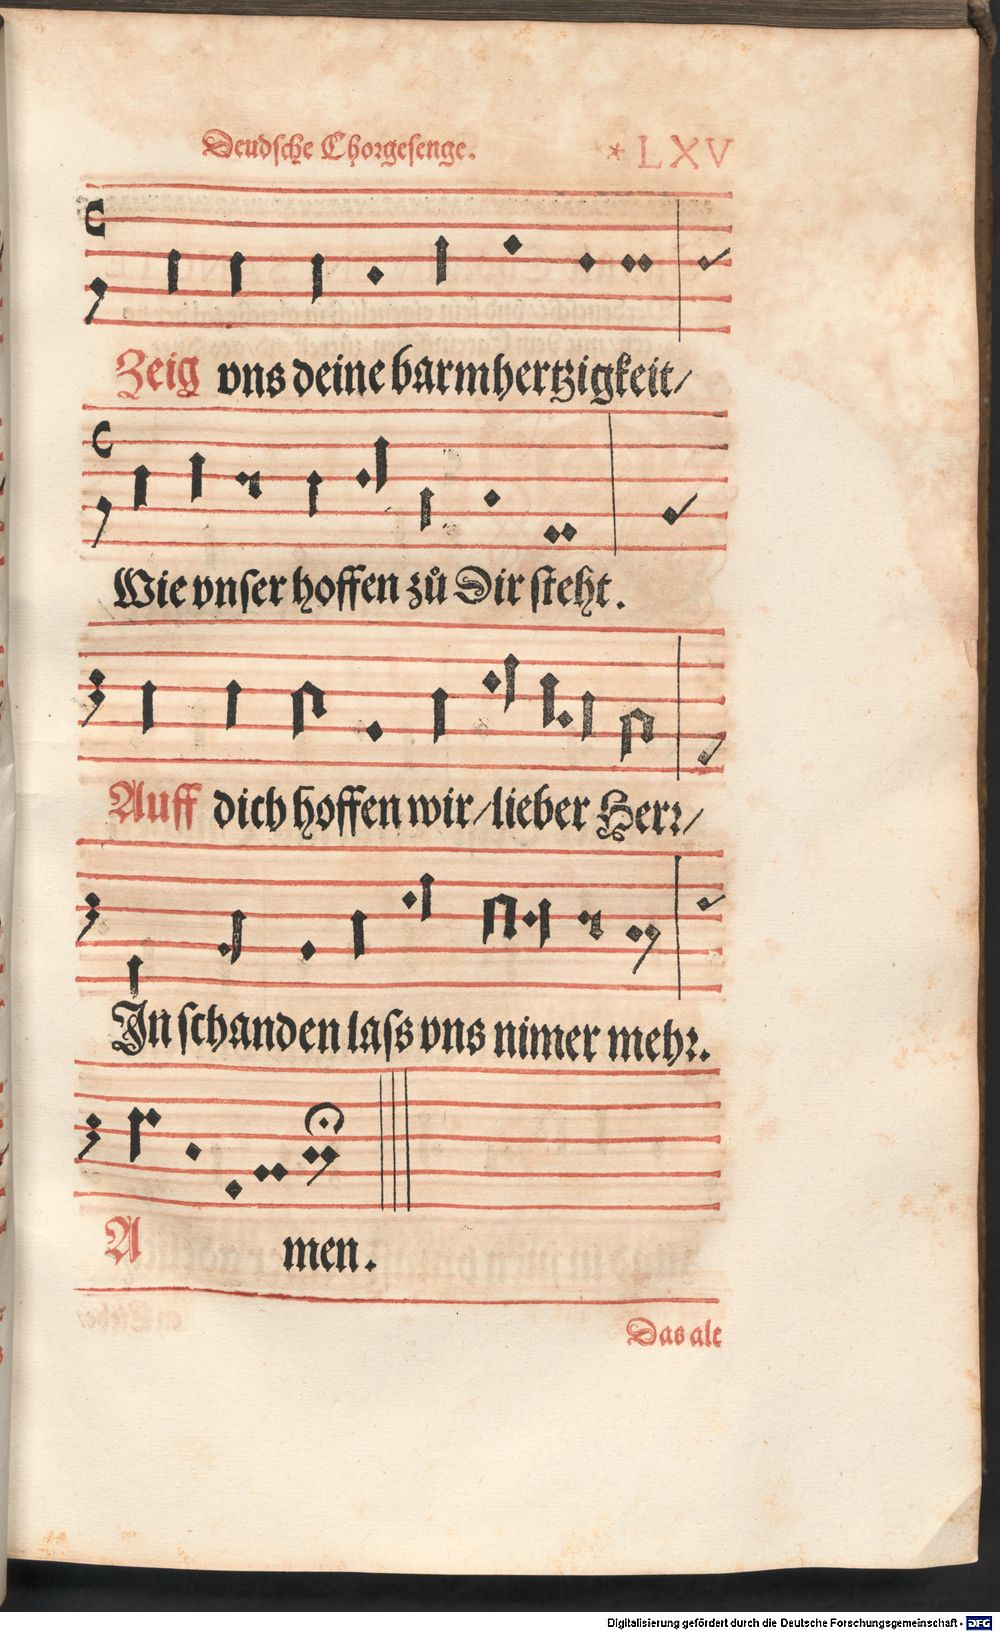 Deudsche Chorgesenge. * LXV
Zeig vns deine barmhertzigkeit/
Wie vnser hoffen zů Dir steht.
Auff dich hoffen wir/lieber Herr/
In schanden lass vns nimer mehr.
A men.
Das alt
Digitalisierung gefördert durch die Deutsche Forschungsgemeinschaft - DFG